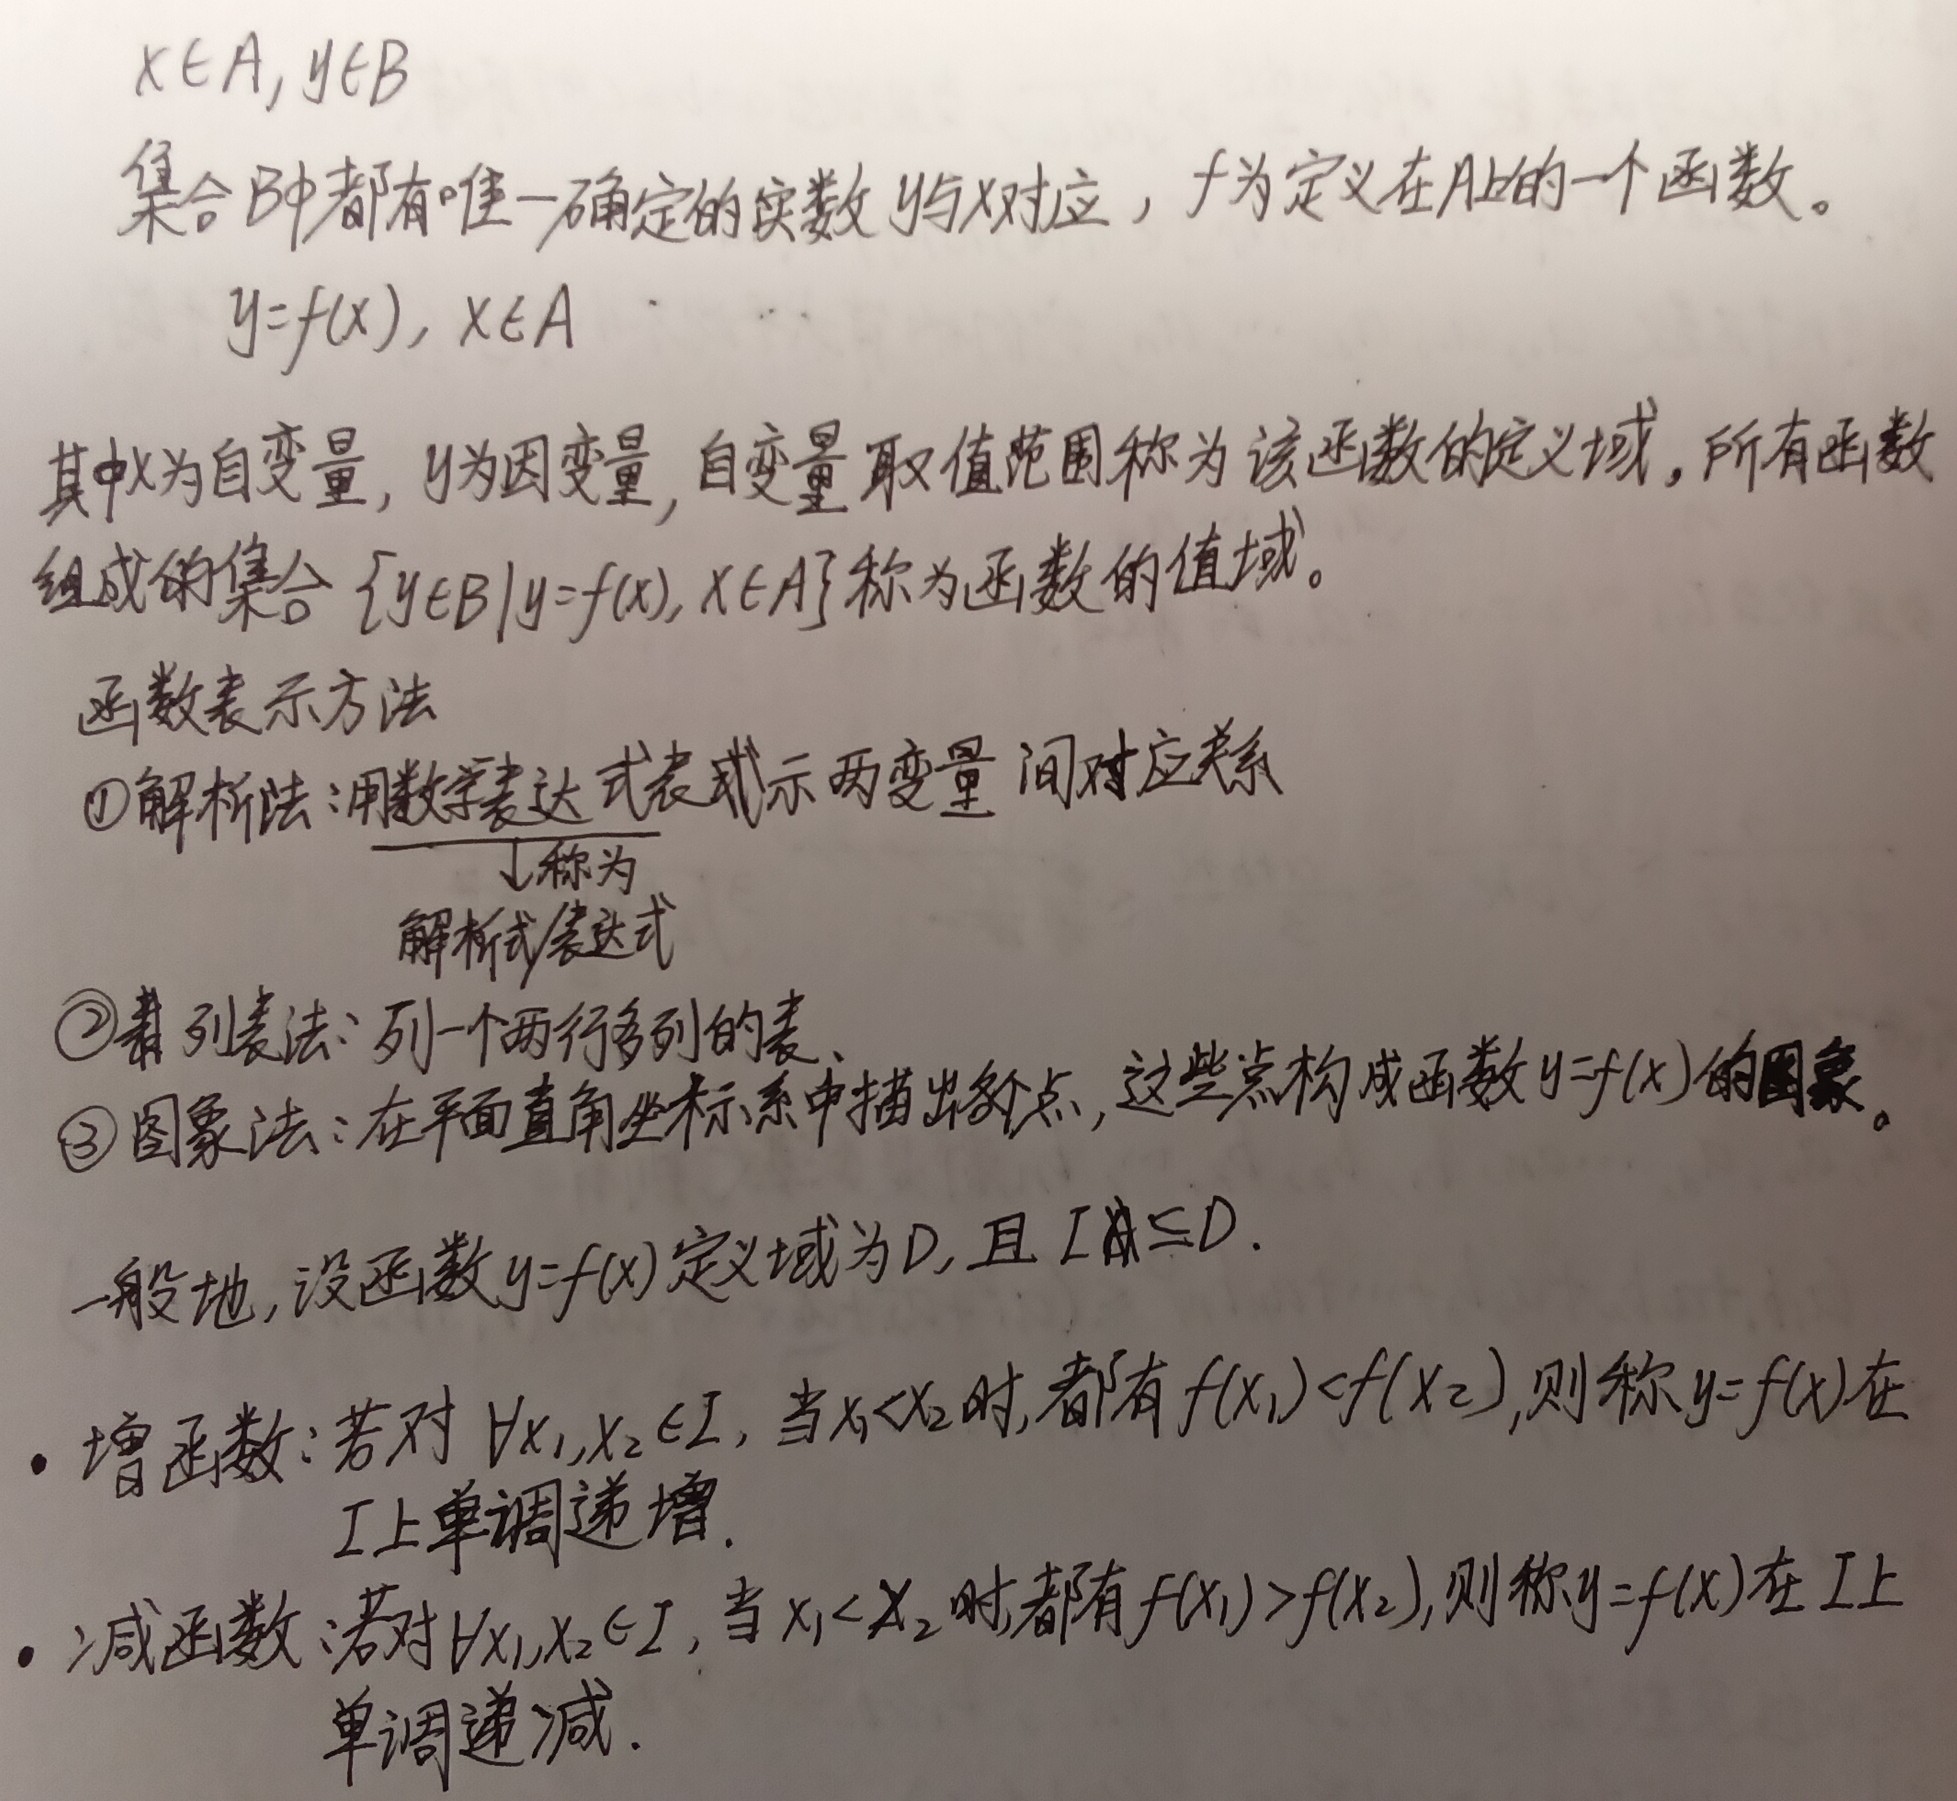 x∈A, y∈B
集合B中都有唯一确定的实数y与x对应，f为定义在A上的一个函数。
y=f(x), x∈A
其中x为自变量, y为因变量, 自变量取值范围称为该函数的定义域。所有函数
组成的集合{y∈B|y=f(x), x∈A}称为函数的值域。
函数表示方法
①解析法:用数学表达式表示两变量间对应关系
↓称为
解析式/表达式
②列表法:列一个两行多列的表.
③图象法:在平面直角坐标系中描出各个点,这些点构成函数y=f(x)的图象。
一般地,设函数y=f(x)定义域为D,且I⊆D.
• 增函数:若对∀x₁,x₂∈I, 当x₁<x₂时,都有f(x₁)<f(x₂),则称y=f(x)在
I上单调递增.
• 减函数:若对∀x₁,x₂∈I, 当x₁<x₂时,都有f(x₁)>f(x₂),则称y=f(x)在I上
单调递减.